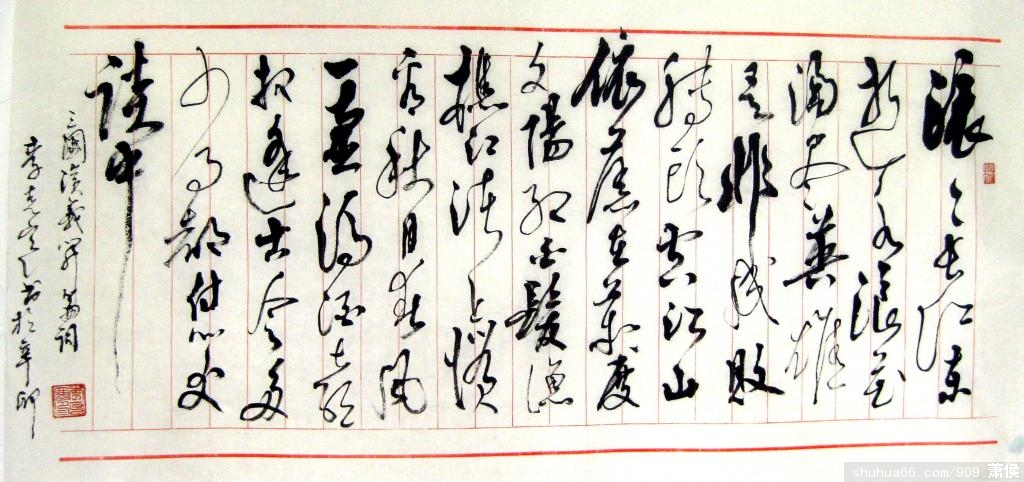 滚〻長江東
逝水浪花
淘尽英雄
是非成败
转頭空江山
依舊在幾度
夕陽红白髮漁
樵江渚上惯
看秋月春风
一壺濁酒喜
相逢古今多
少事都付笑
谈中
三國演義開篇词
shuhua66.com/909 萧侯